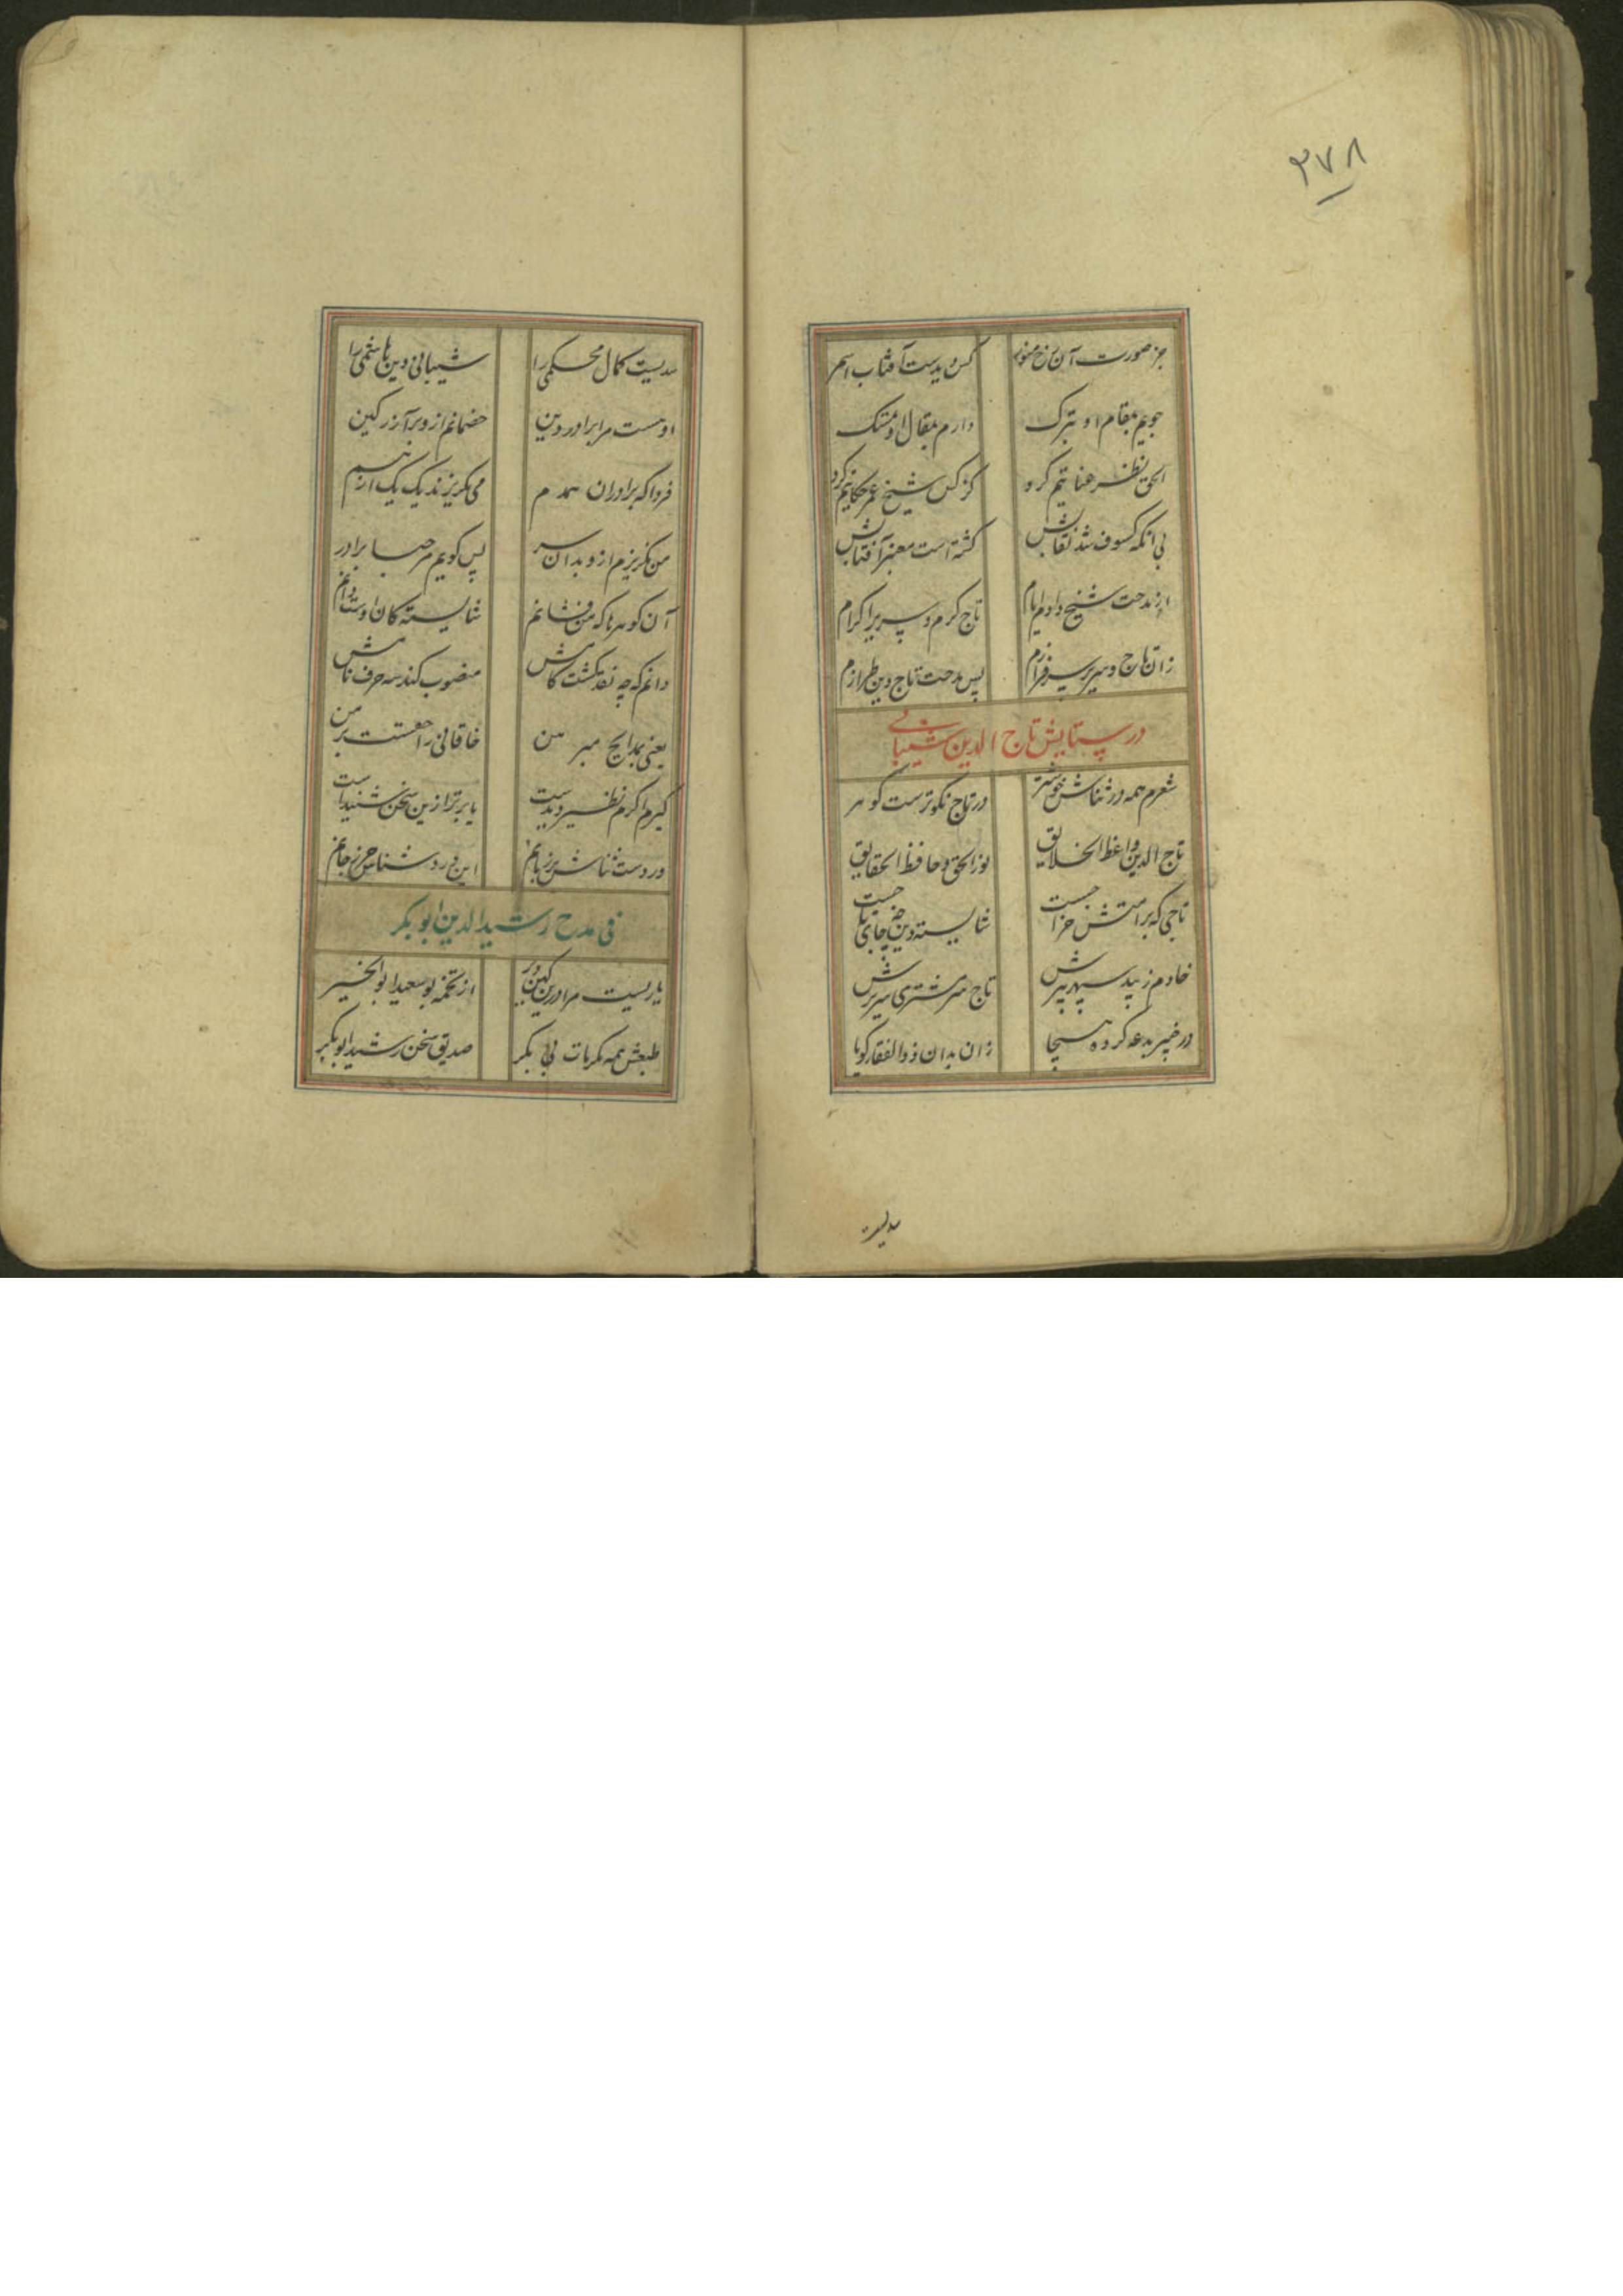 ۳۷۸
جز صورت آن رخ منور کس دیدست آفتاب اسمر
جویم بمقام او تبرک دارم بمقال او تمسک
الحق نظر عنایتم کرد کز کس شیخ عمر حکایتم کرد
بی آنکه کسوف شد نقابش گشته است معنبر آفتابش
از مدحت شیخ دادم ایام تاج کرم و سریر اکرام
زان تاج و سریر سرفرازم پس مدحت تاج دین طرازم
در ستایش تاج الدین شیبانی
شعرم همه در ثناش خوشتر در تاج نکوترست گوهر
تاج الدین واعظ الخلایق نور الحق و حافظ الحقایق
تاجی که بر امتش خزا جست شایسته دین چه جای تا جست
خادم زیبد سپهر پیرش تاج سر مشتری سریرش
در خیبر بدعه کرده هیجا زان بدان ذوالفقار گویا
سدیست
سدیست کمال محکمی را شیبانی دین هاشمی را
او هست مرا برادر دین خصمانم ازو بر آزر کین
فردا که برادران همدم می بگریزند یک یک از هم
من نگریزم ازو بدان سر پس گویم مرحبا برادر
آن گوهرها که من فشانم شایسته کان اوست دانم
دانم که چه نقد گشت کامش منصوب کند سه حرف نامش
یعنی بمدایح مبر من خاقانی را حقست بر من
گیرم اکرم نظیر دیدست یا برتر ازین سخن شنیدست
ورد دست ثناش بر زبانم این ورد شناس حرز جانم
فی مدح رشید الدین ابو بکر
یاریست مرا درین کهن دیر از تخمه بو سعید ابو الخیر
طبعش همه مکرمات بی بکر صدیق سخن رشید ابو بکر